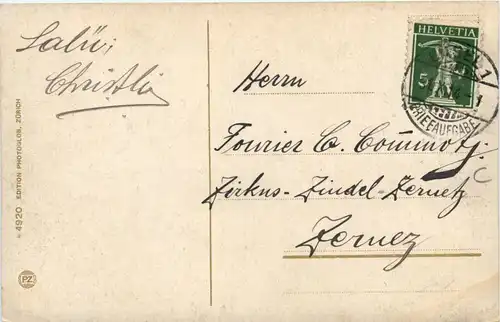 Salü;
Christli
Herrn
Fourier C. Cominoty
Zirkus-Zindel-Zernetz
Zernez
HELVETIA
5
1
BRIEFAUFGABE
4920 EDITION PHOTOGLOB, ZÜRICH
PZ